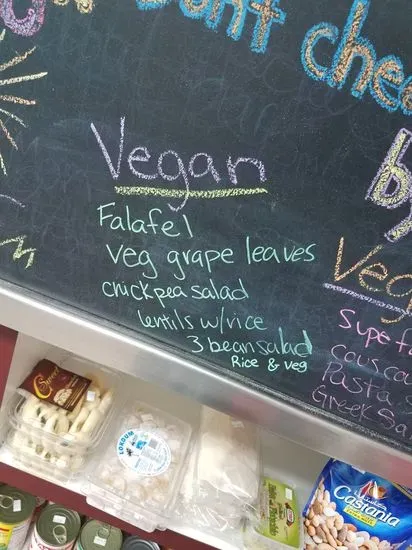 don't che
Vegan
Falafel
Veg grape leaves
chickpea salad
lentils w/rice
3 bean salad
Rice & veg
by
Veg
Supe
cousco
Pasta S
Greek Sa
LOKOUM
Castania